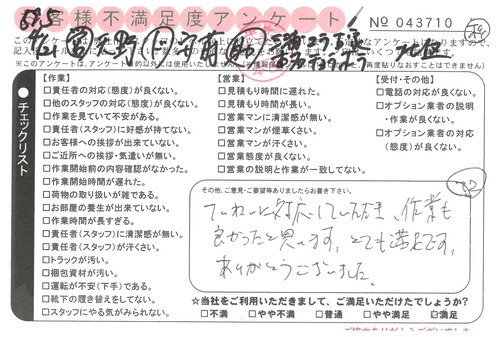 お客様不満足度アンケート
№ 043710
【作業】
□責任者の対応(態度)が良くない。
□他のスタッフの対応(態度)が良くない。
□作業を見ていて不安がある。
□責任者(スタッフ)に好感が持てない。
□お客様への挨拶が出来ていない。
□ご近所への挨拶・気遣いが無い。
□作業開始前の内容確認がなかった。
□作業開始時間が遅れた。
□荷物の取り扱いが雑である。
□お部屋の養生が出来ていない。
□作業時間が長すぎる。
□責任者(スタッフ)に清潔感が無い。
□責任者(スタッフ)が汗くさい。
□トラックが汚い。
□梱包資材が汚い。
□運転が不安(下手)である。
□靴下の履き替えをしてない。
□スタッフにやる気がみられない。
【営業】
□見積もり時間に遅れた。
□見積もり時間が長い。
□営業マンに清潔感が無い。
□営業マンが煙草くさい。
□営業マンが汗くさい。
□営業態度が良くない。
□営業の説明と作業が一致してない。
【受付・その他】
□電話の対応が良くない。
□オプション業者の説明
・作業が良くない。
□オプション業者の対応
(態度)が良くない。
チェックリスト
その他、ご意見・ご要望等ありましたらお書き下さい。
ていねいに対応していただき、作業も
良かったと思います。とても満足です。
ありがとうございました。
☆当社をご利用いただきまして、ご満足いただけたでしょうか?
□不満 □やや不満 □普通 □やや満足 ☑満足